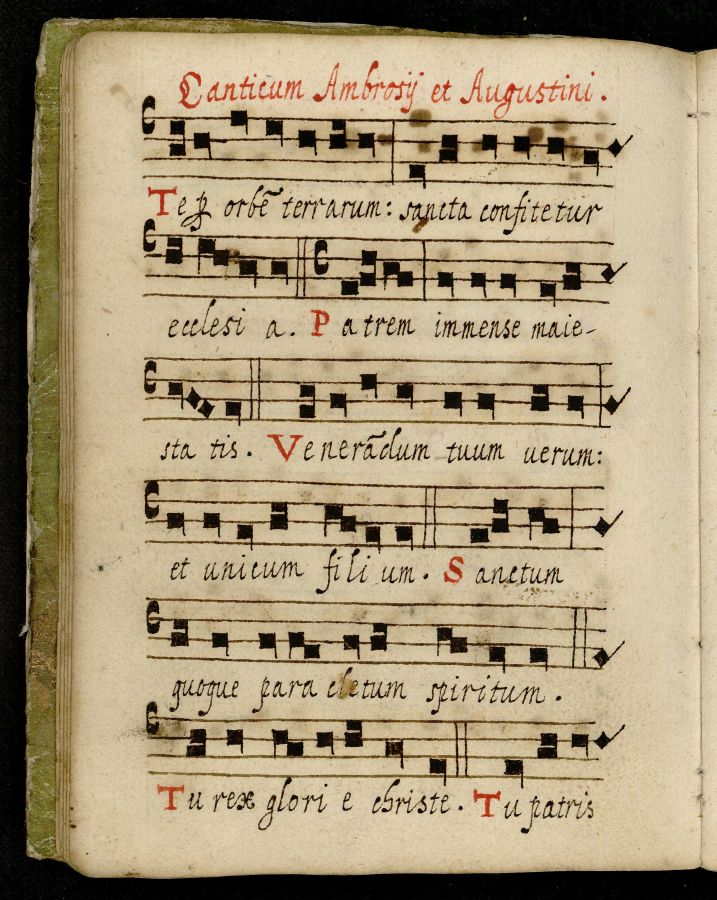 Canticum Ambrosij et Augustini.
Te ꝑ orbē terrarum: sancta confitetur
ecclesi a. Patrem immense maie-
sta tis. Venerādum tuum uerum:
et unicum fili um. Sanctum
quoque para cletum spiritum.
Tu rex glori e christe. Tu patris